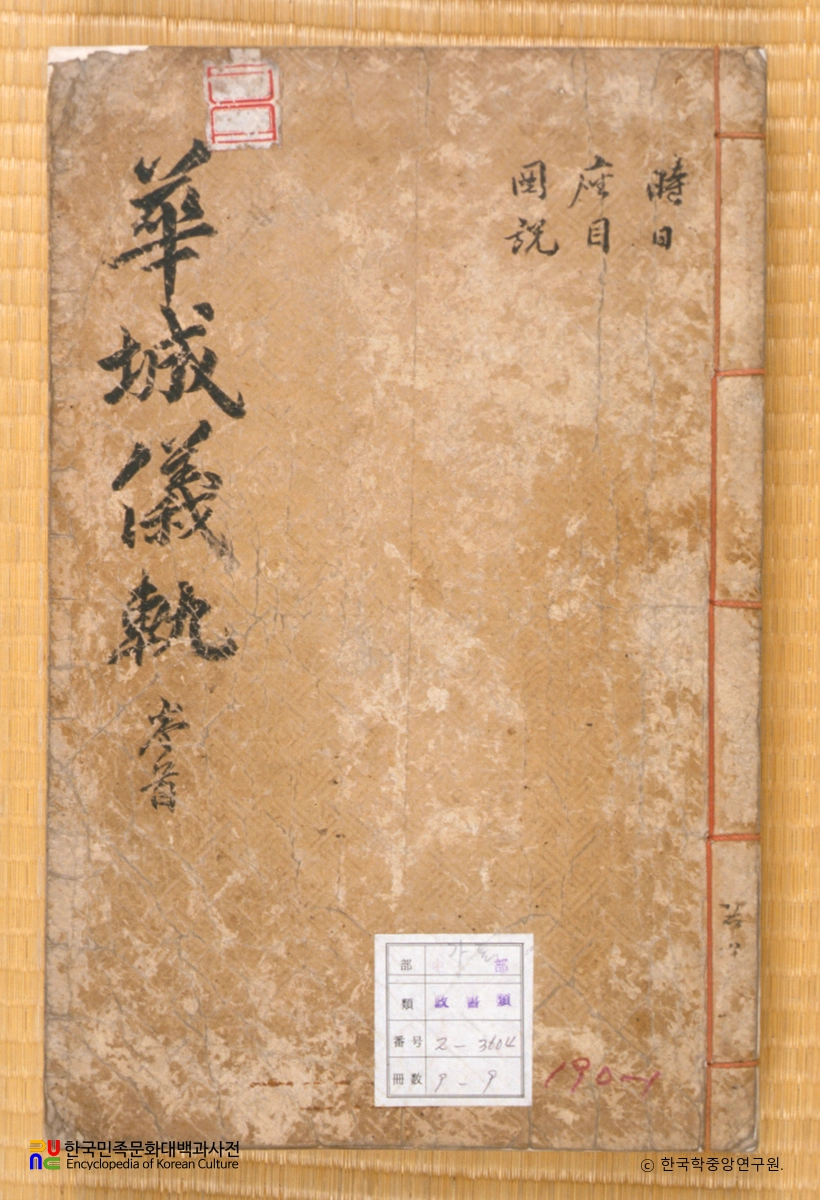 華城儀軌 卷首
時日
座目
圖說
部 部
類 政書類
番号 2-3604
冊数 9-9
190-1
한국민족문화대백과사전
Encyclopedia of Korean Culture
ⓒ 한국학중앙연구원.